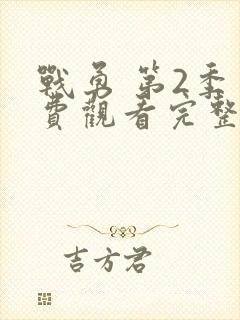 戰勇 第2季
費觀看完整
吉方君